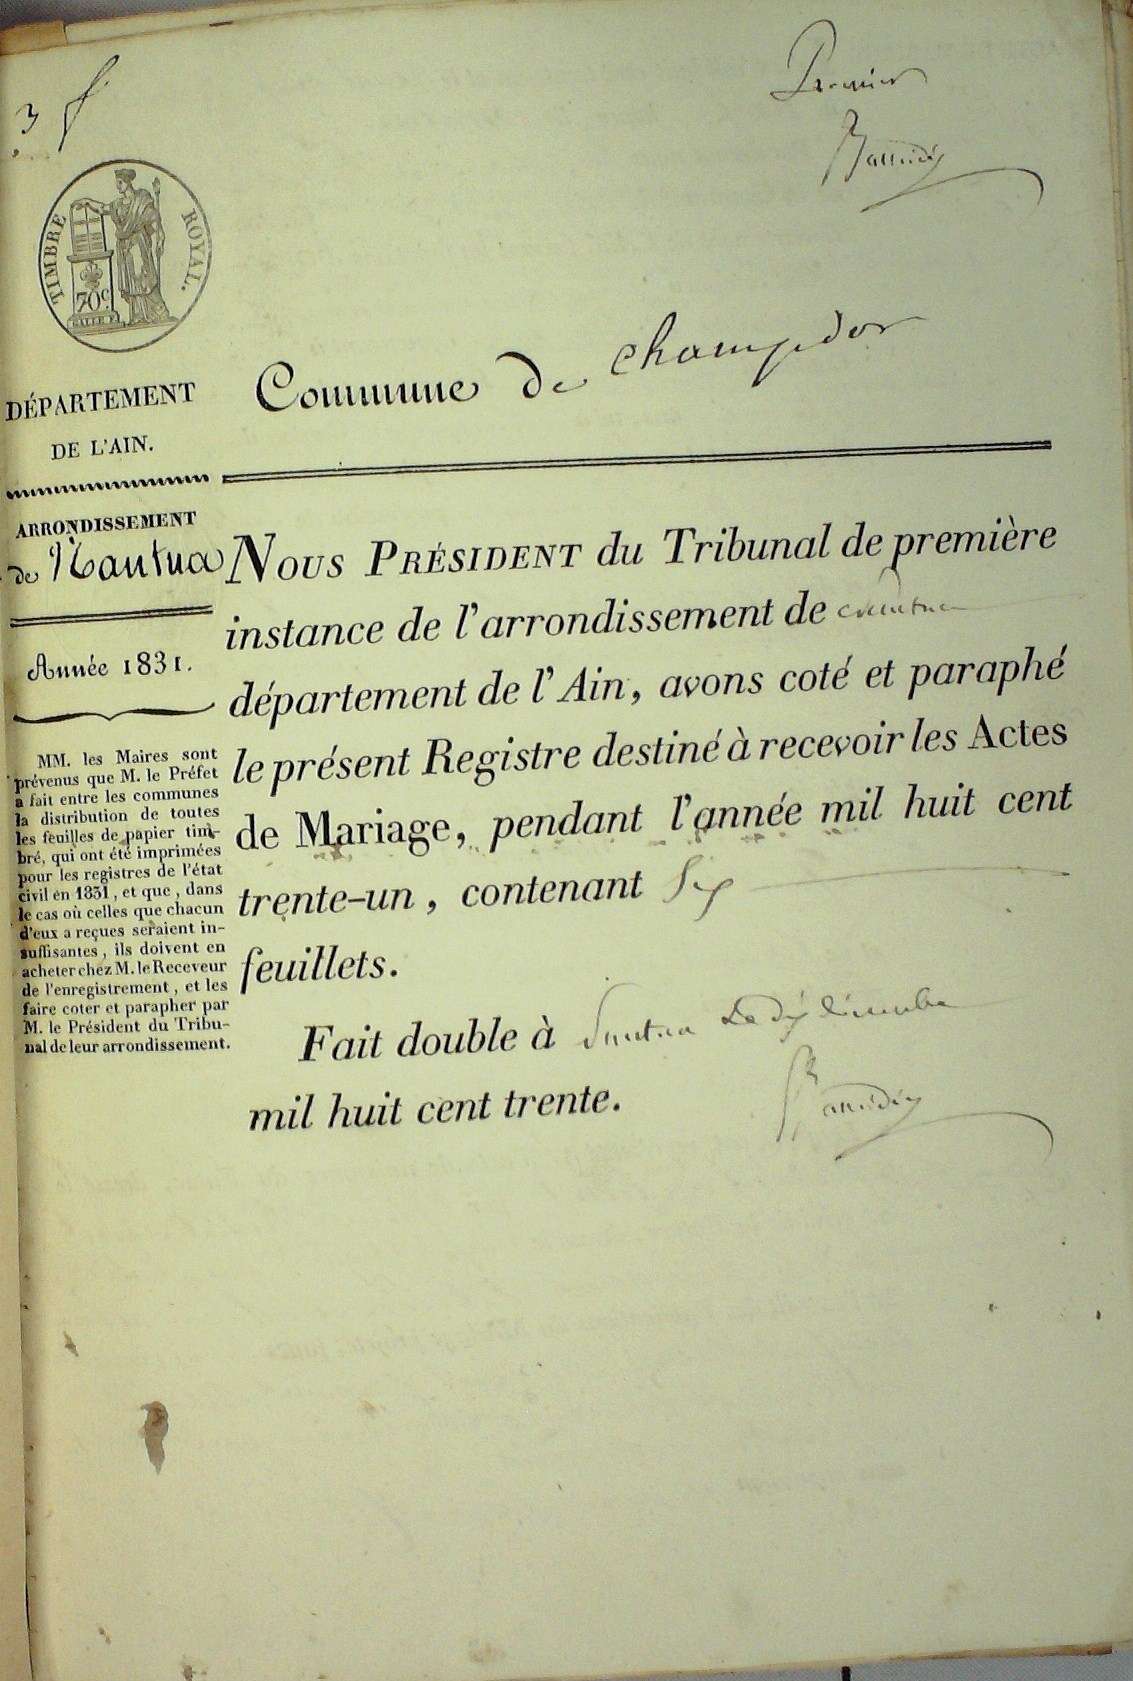 3 f
Premier
TIMBRE ROYAL.
70c.
DÉPARTEMENT
DE L'AIN.
ARRONDISSEMENT
de Nantua
Année 1831.
MM. les Maires sont
prévenus que M. le Préfet
a fait entre les communes
la distribution de toutes
les feuilles de papier tim-
bré, qui ont été imprimées
pour les registres de l'état
civil en 1831, et que, dans
le cas où celles que chacun
d'eux a reçues seraient in-
suffisantes, ils doivent en
acheter chez M. le Receveur
de l'enregistrement, et les
faire coter et parapher par
M. le Président du Tribu-
nal de leur arrondissement.
Commune de champdor
NOUS PRÉSIDENT du Tribunal de première
instance de l'arrondissement de Nantua
département de l'Ain, avons coté et paraphé
le présent Registre destiné à recevoir les Actes
de Mariage, pendant l'année mil huit cent
trente-un, contenant Six
feuillets.
Fait double à Nantua Le dix décembre
mil huit cent trente.